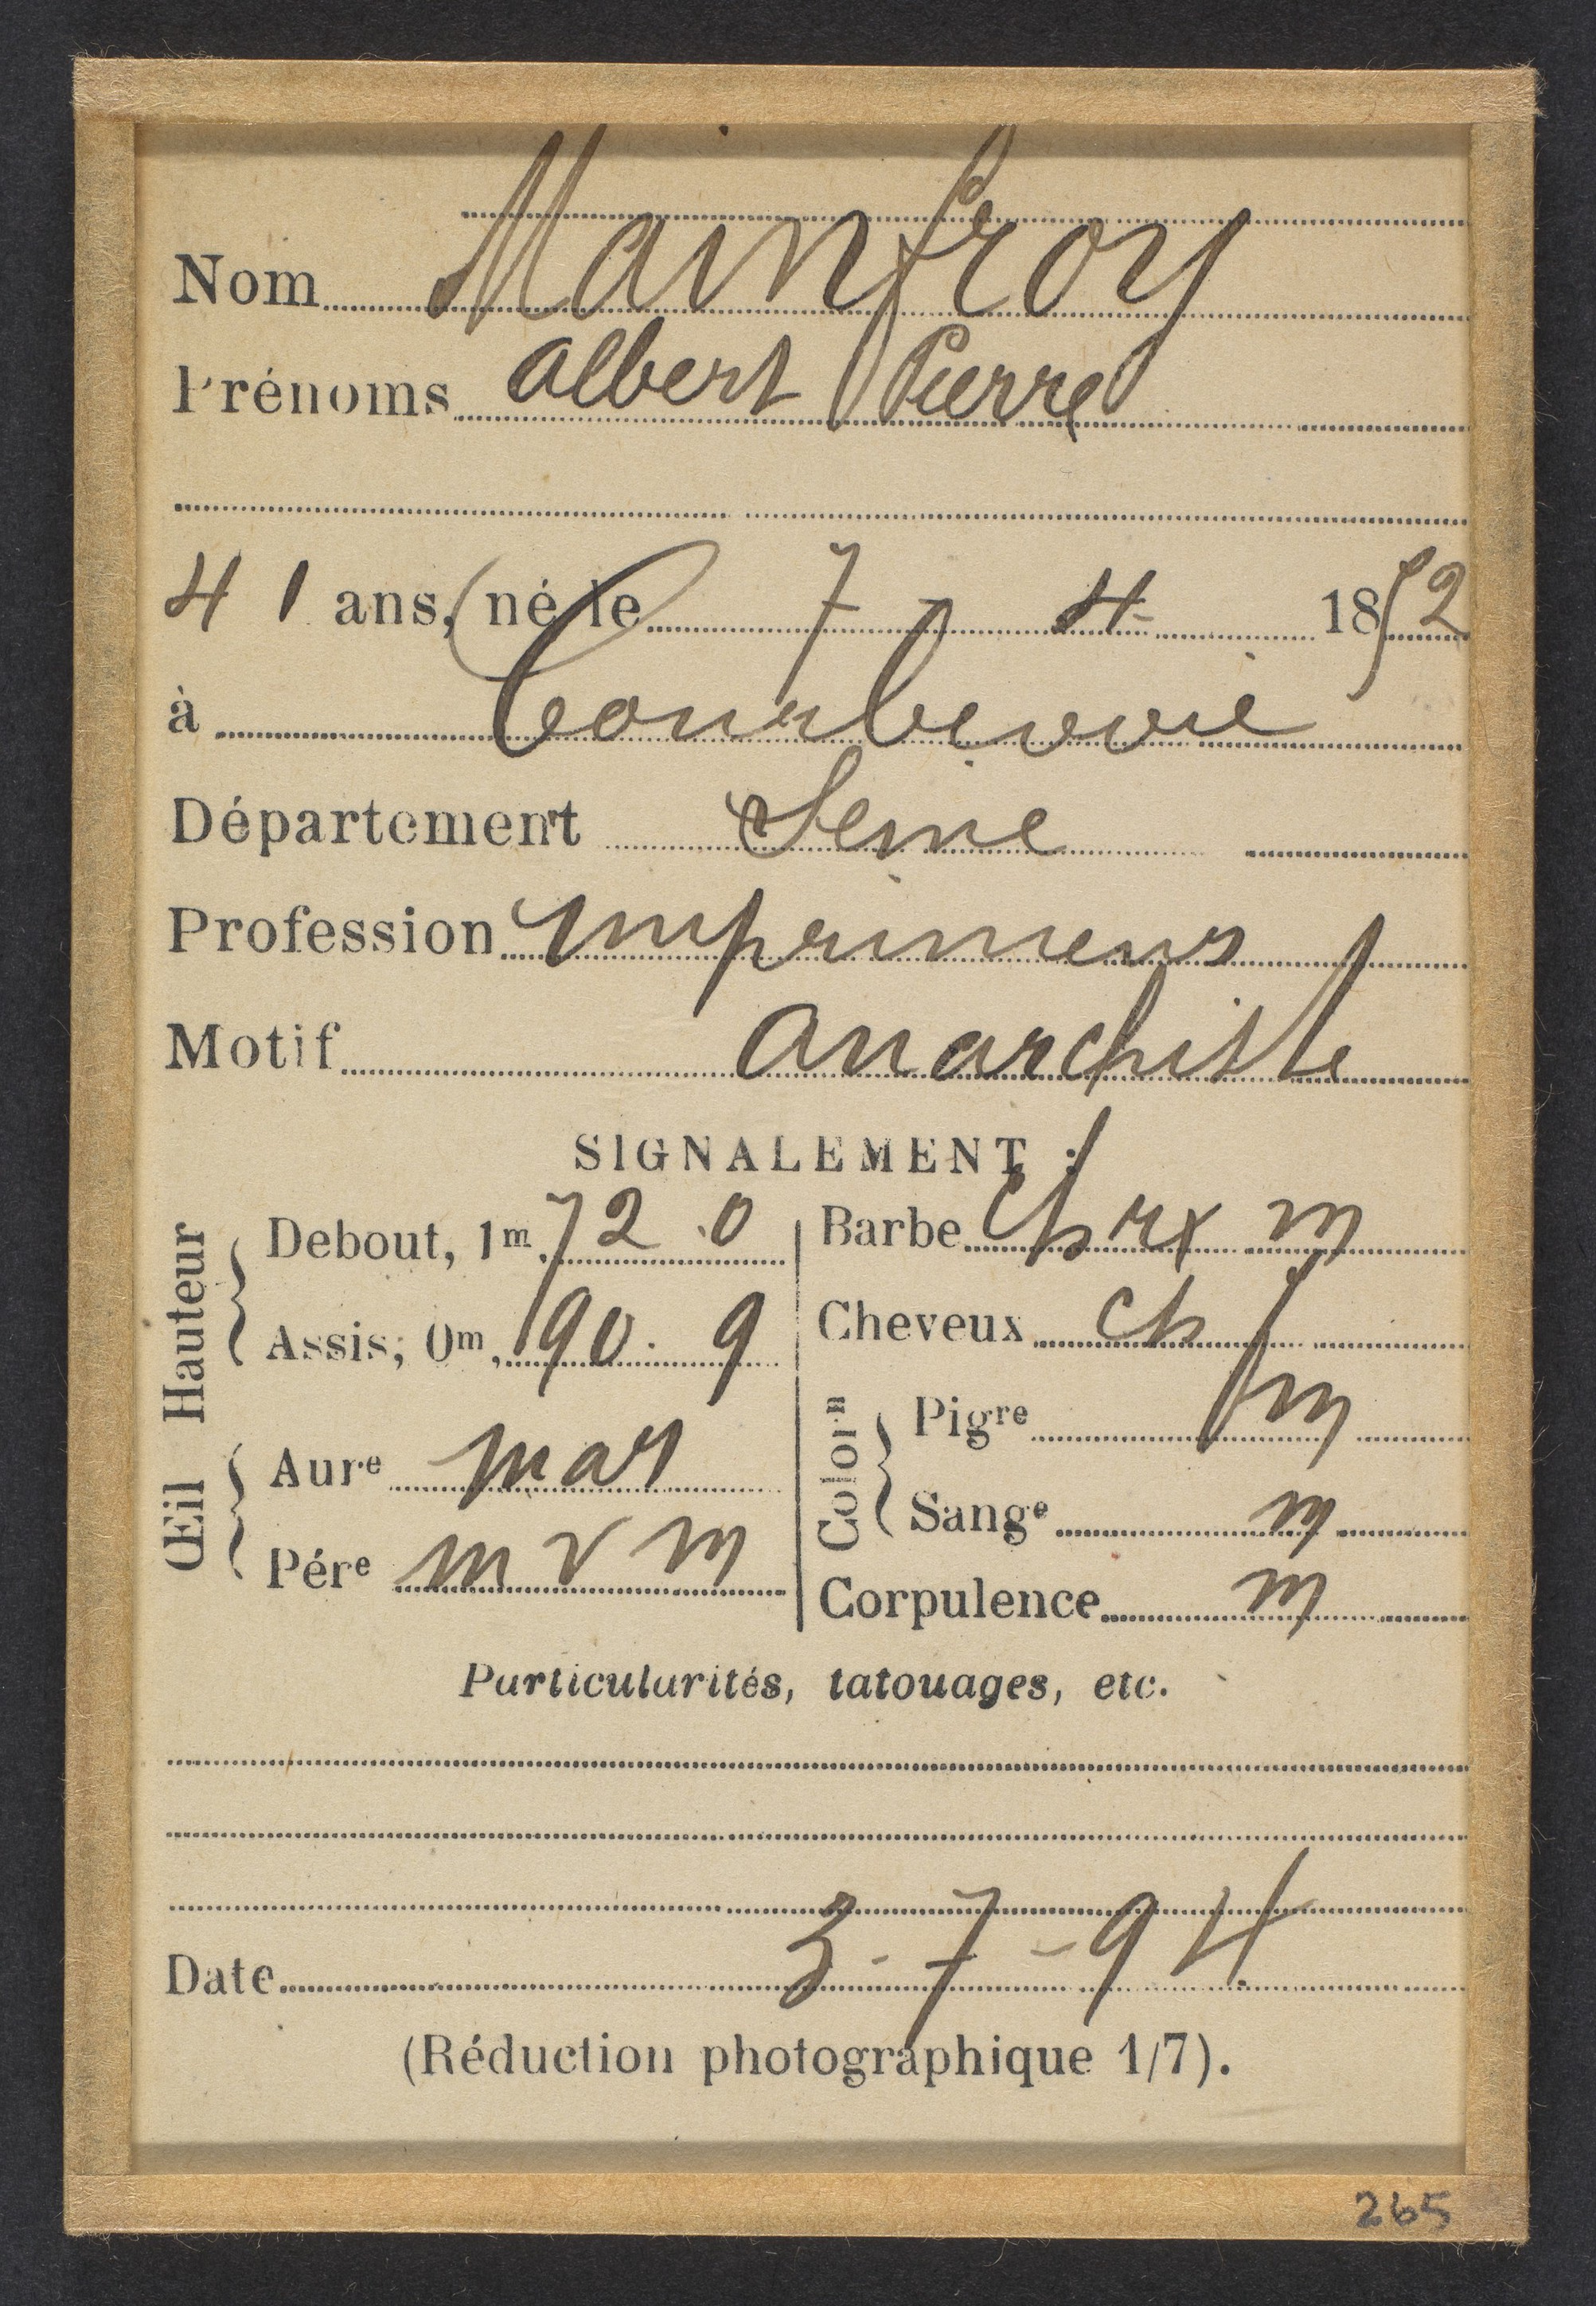 Nom Mainfroy
Prénoms Albert Pierre
41 ans, né le 7 4 1852
à Courbevoie
Département Seine
Profession Imprimeur
Motif anarchiste
SIGNALEMENT :
Hauteur
Debout, 1m, 72.0
Assis, 0m, 90.9
Œil
Aure mar
Père m v m
Barbe ch rx m
Cheveux ch f
Color.n
Pigre m
Sange m
Corpulence m
Particularités, tatouages, etc.
Date 3-7-94
(Réduction photographique 1/7).
265